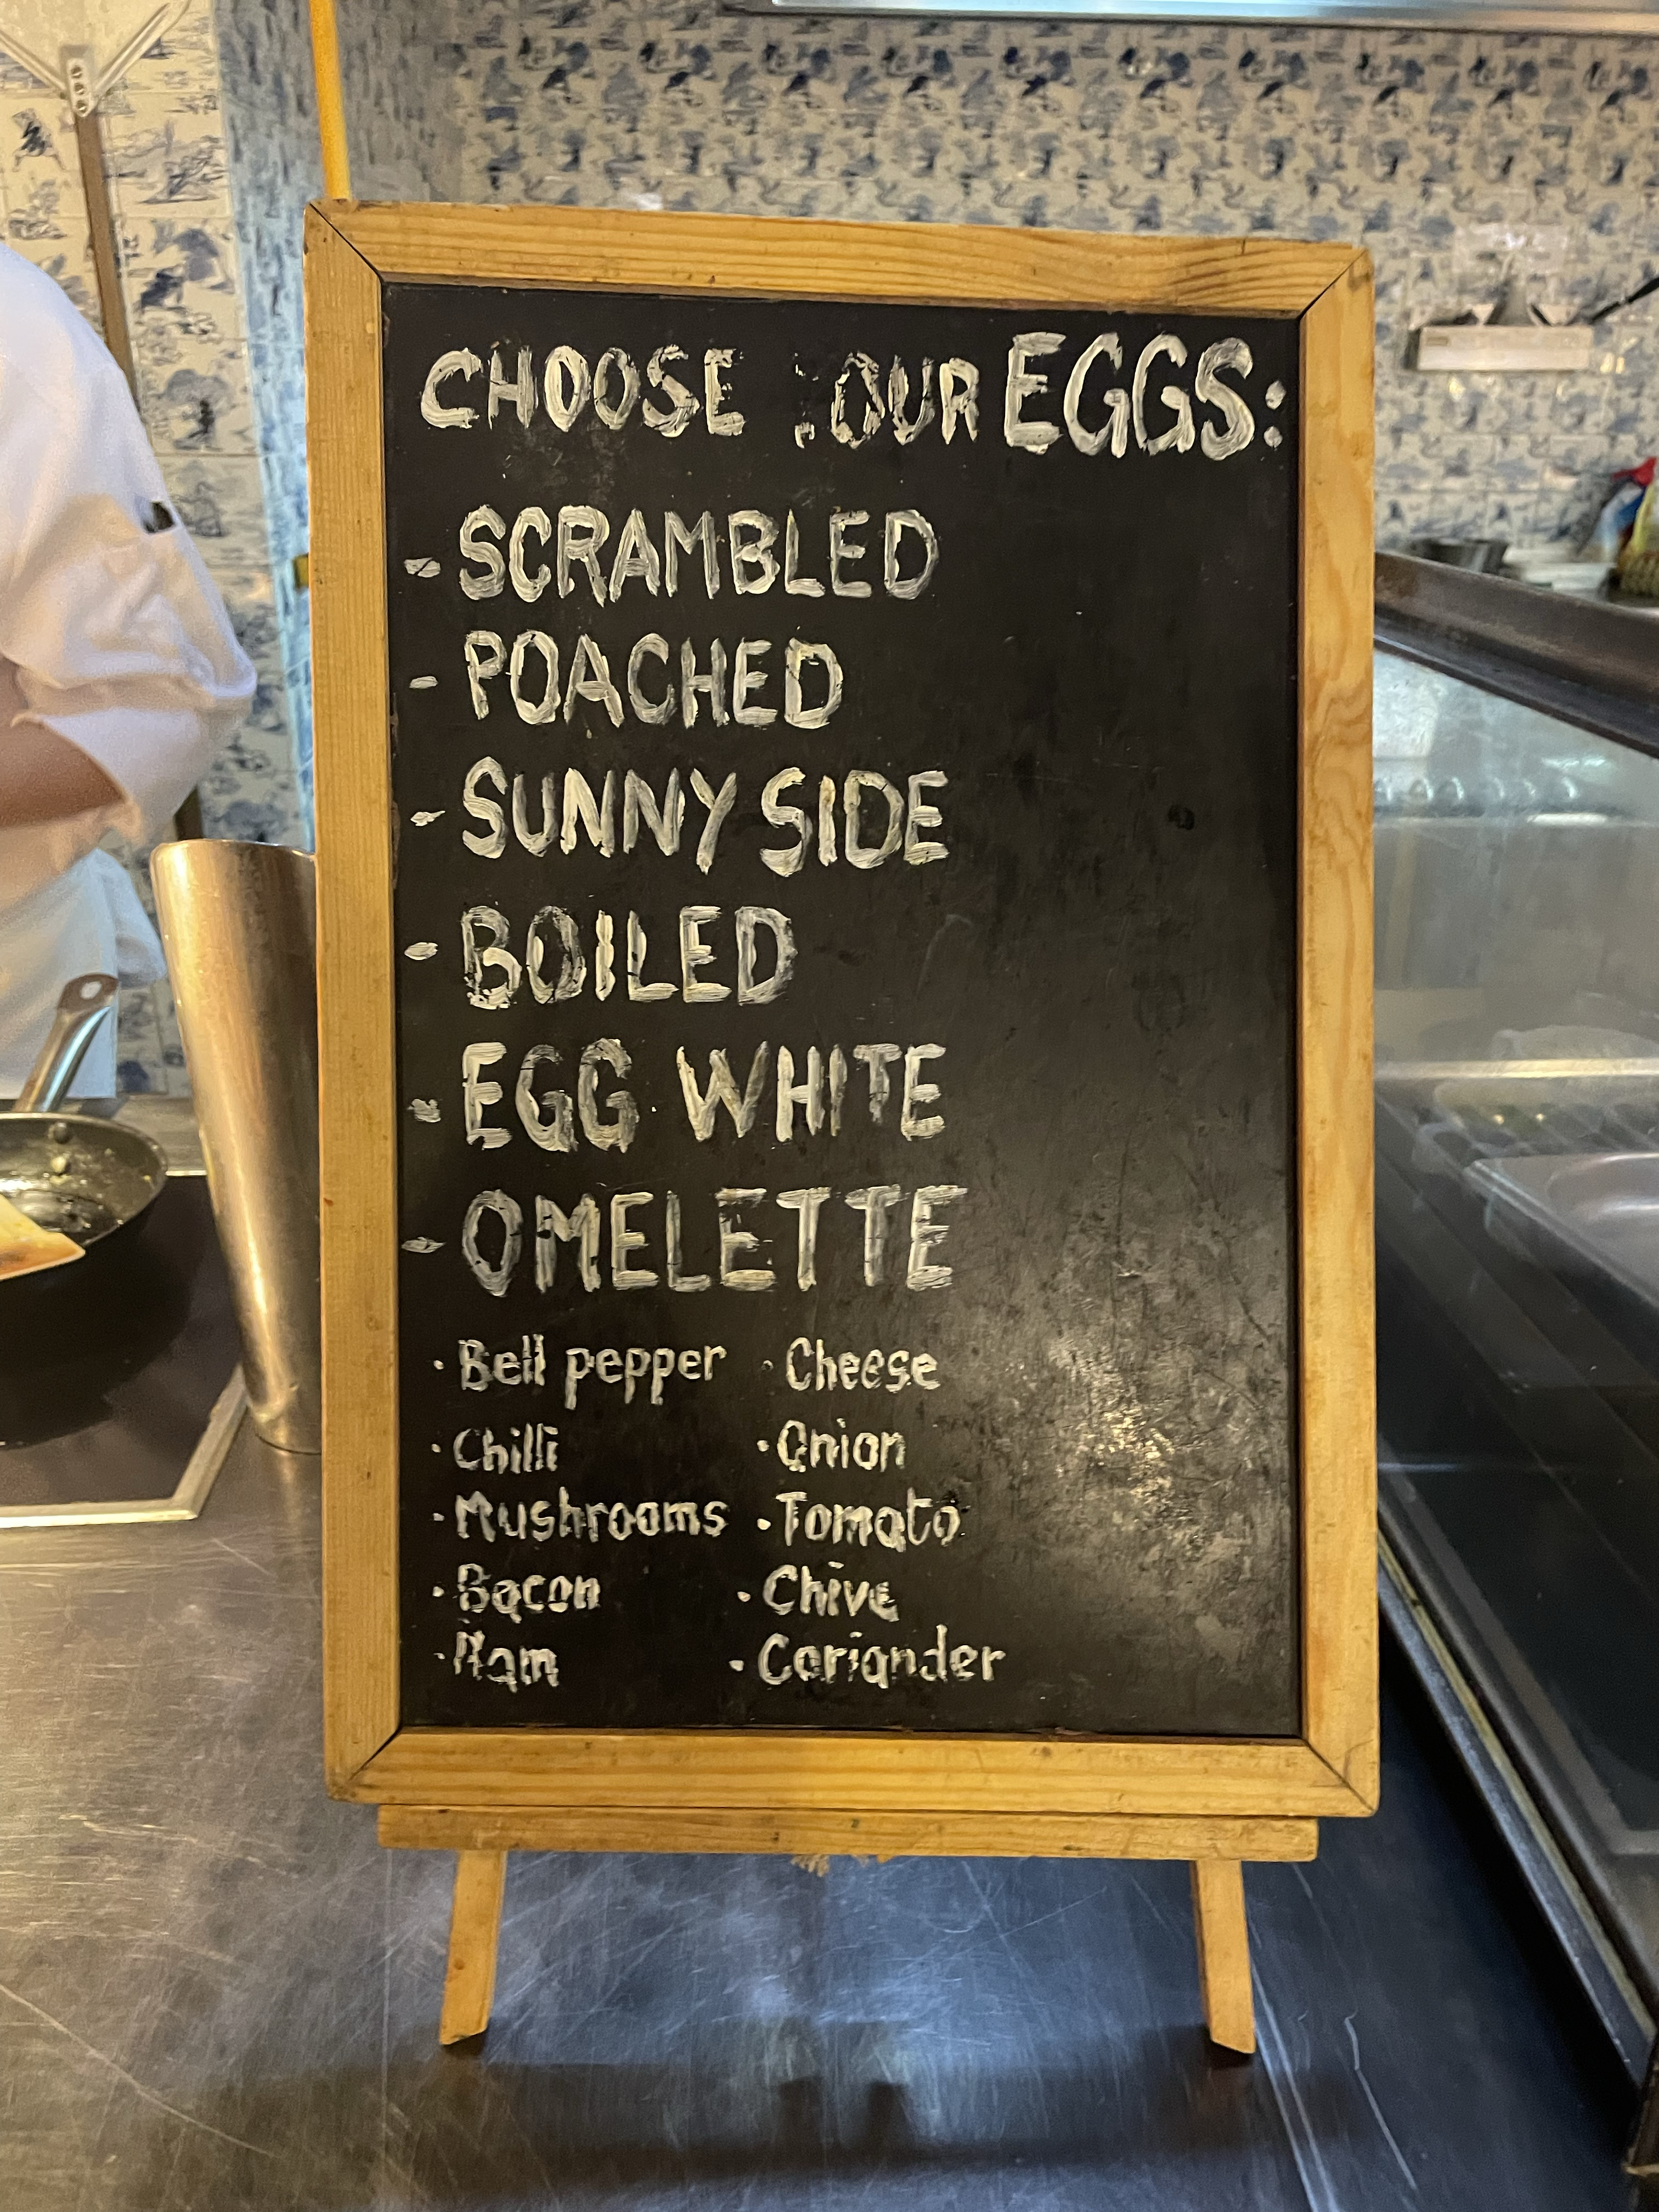 CHOOSE OUR EGGS:
- SCRAMBLED
- POACHED
- SUNNY SIDE
- BOILED
- EGG WHITE
- OMELETTE
· Bell pepper · Cheese
· Chilli · Onion
· Mushrooms · Tomato
· Bacon · Chive
· Ham · Coriander